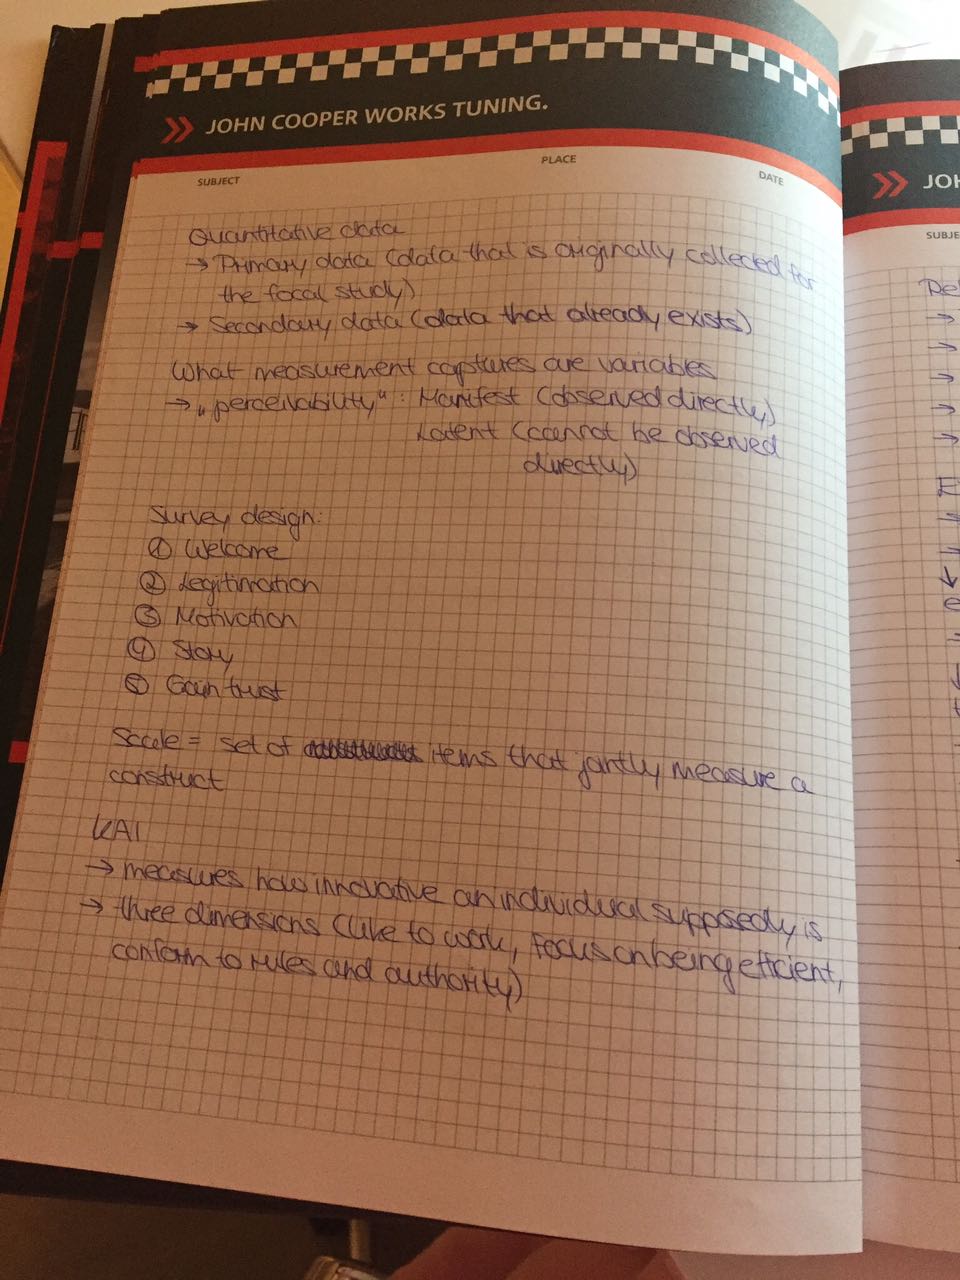 JOHN COOPER WORKS TUNING.
SUBJECT
PLACE
DATE
Quantitative data
→ Primary data (data that is originally collected for
the focal study)
→ Secondary data (data that already exists)
What measurement captures are variables
→ „perceivability“: Manifest (observed directly)
Latent (cannot be observed
directly)
Survey design:
① Welcome
② Legitimation
③ Motivation
④ Story
⑤ Gain trust
Scale = set of items that jointly measure a
construct
KAI
→ measures how innovative an individual supposedly is
→ three dimensions (like to work, Focus on being efficient,
conform to rules and authority)
JO
SUBJE